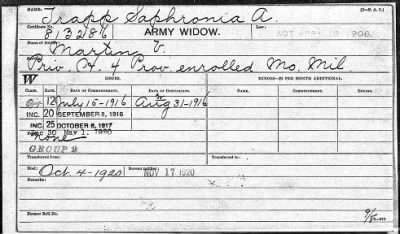 NAME: Trapp Saphronia A. (C-P.A.S.)
Certificate No.
813286 ARMY WIDOW. Law ACT APRIL 19 1908.
Name of Soldier:
Martin V.
Service:
Priv. H. 4 Prov. enrolled Mo. Mil.
W ISSUES. MONTH ADDITIONAL.
CLASS. RATE. DATE OF COMMENCEMENT. DATE OF CERTIFICATE. CLASS. RATE. DATE OF COMMENCEMENT. DATE OF CERTIFICATE.
Or 12 July 15-1916 Aug 31-1916
INC. 20 SEPTEMBER 8, 1916
INC. 25 OCTOBER 6, 1917
30 May 1. 1920
None
GROUP 2
Transferred from: Transferred to:
Died: Oct. 4-1920 Bureau notified: NOV 17 1920
Remarks: Remarks:
Former Roll No.